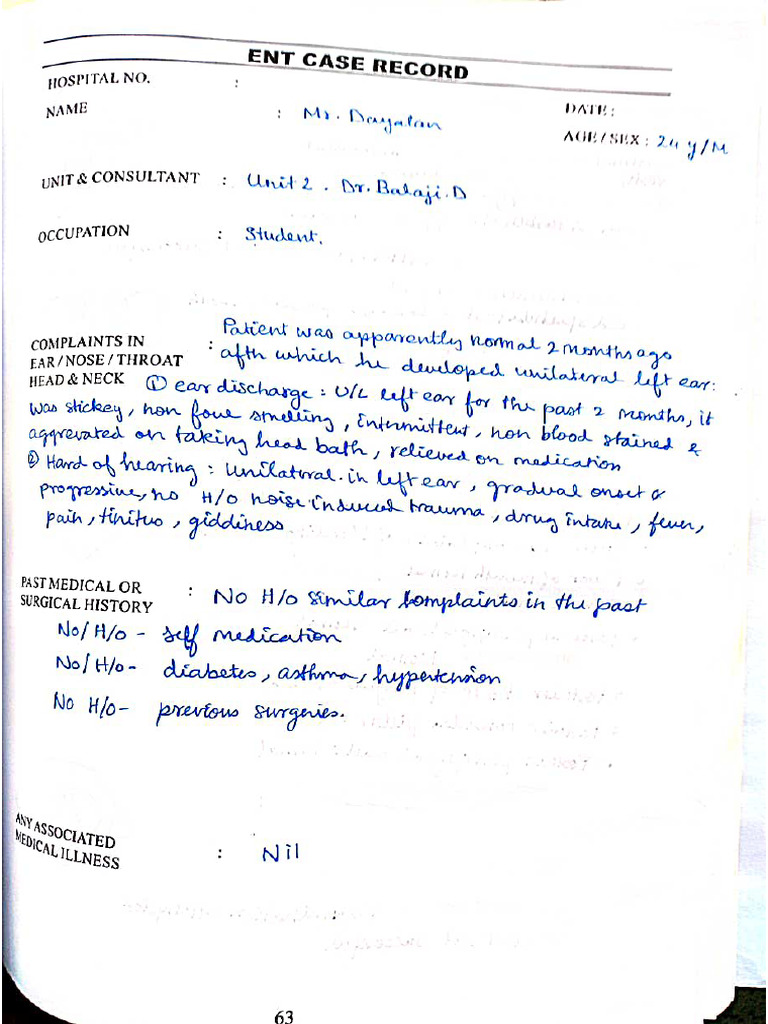 ENT CASE RECORD
HOSPITAL NO. :
NAME : Mr. Dayalan
DATE :
AGE / SEX : 24 y/M
UNIT & CONSULTANT : Unit 2 . Dr. Balaji. D
OCCUPATION : Student.
COMPLAINTS IN
EAR / NOSE / THROAT
HEAD & NECK
: Patient was apparently normal 2 months ago
afth which he developed unilateral left ear:
① ear discharge : U/L left ear for the past 2 months, it
was stickey, non foue smelling, intermittent, non blood stained &
aggrevated on taking head bath, relieved on medication
② Hard of hearing : Unilateral in left ear, gradual onset &
progressive, no H/O noise induced trauma, drug intake, fever,
pain, tinitus, giddiness
PAST MEDICAL OR
SURGICAL HISTORY
: No H/o similar complaints in the past
No/H/o - self medication
No/H/o - diabetes, asthma, hypertension
No H/o- previous surgeries.
ANY ASSOCIATED
MEDICAL ILLNESS
: Nil
63